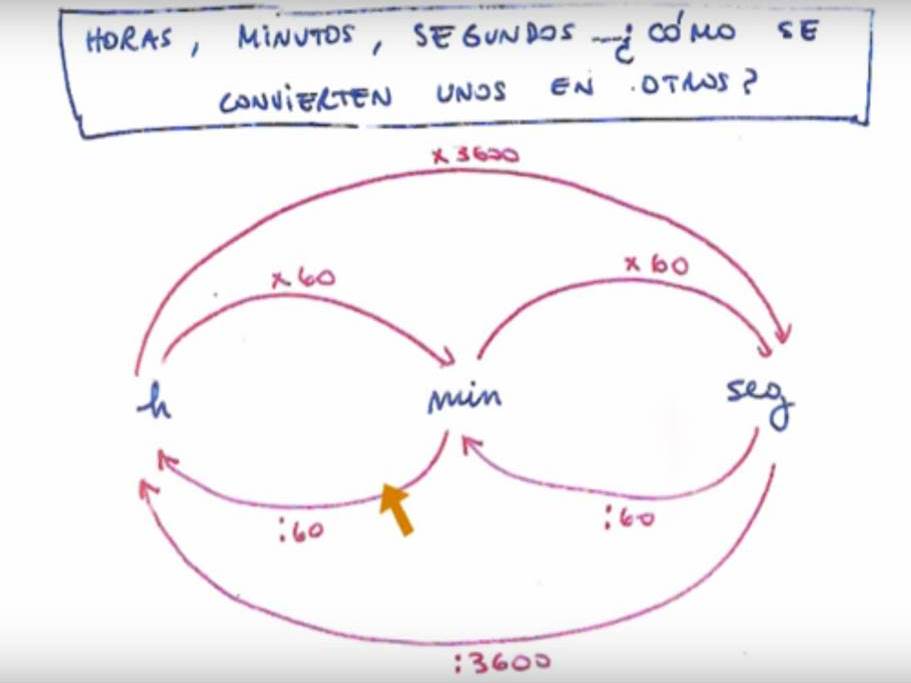 HORAS, MINUTOS, SEGUNDOS —¿ CÓMO SE
CONVIERTEN UNOS EN OTROS?
x 3600
x 60
x 60
h
min
seg
:60
:60
:3600